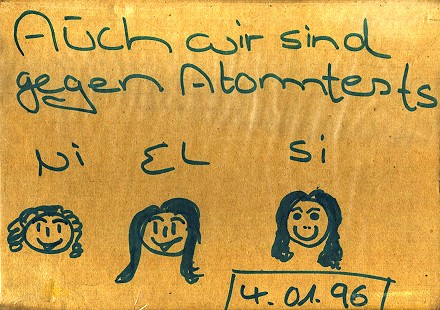 Auch wir sind
gegen Atomtests
Ni EL Si
4.01.96